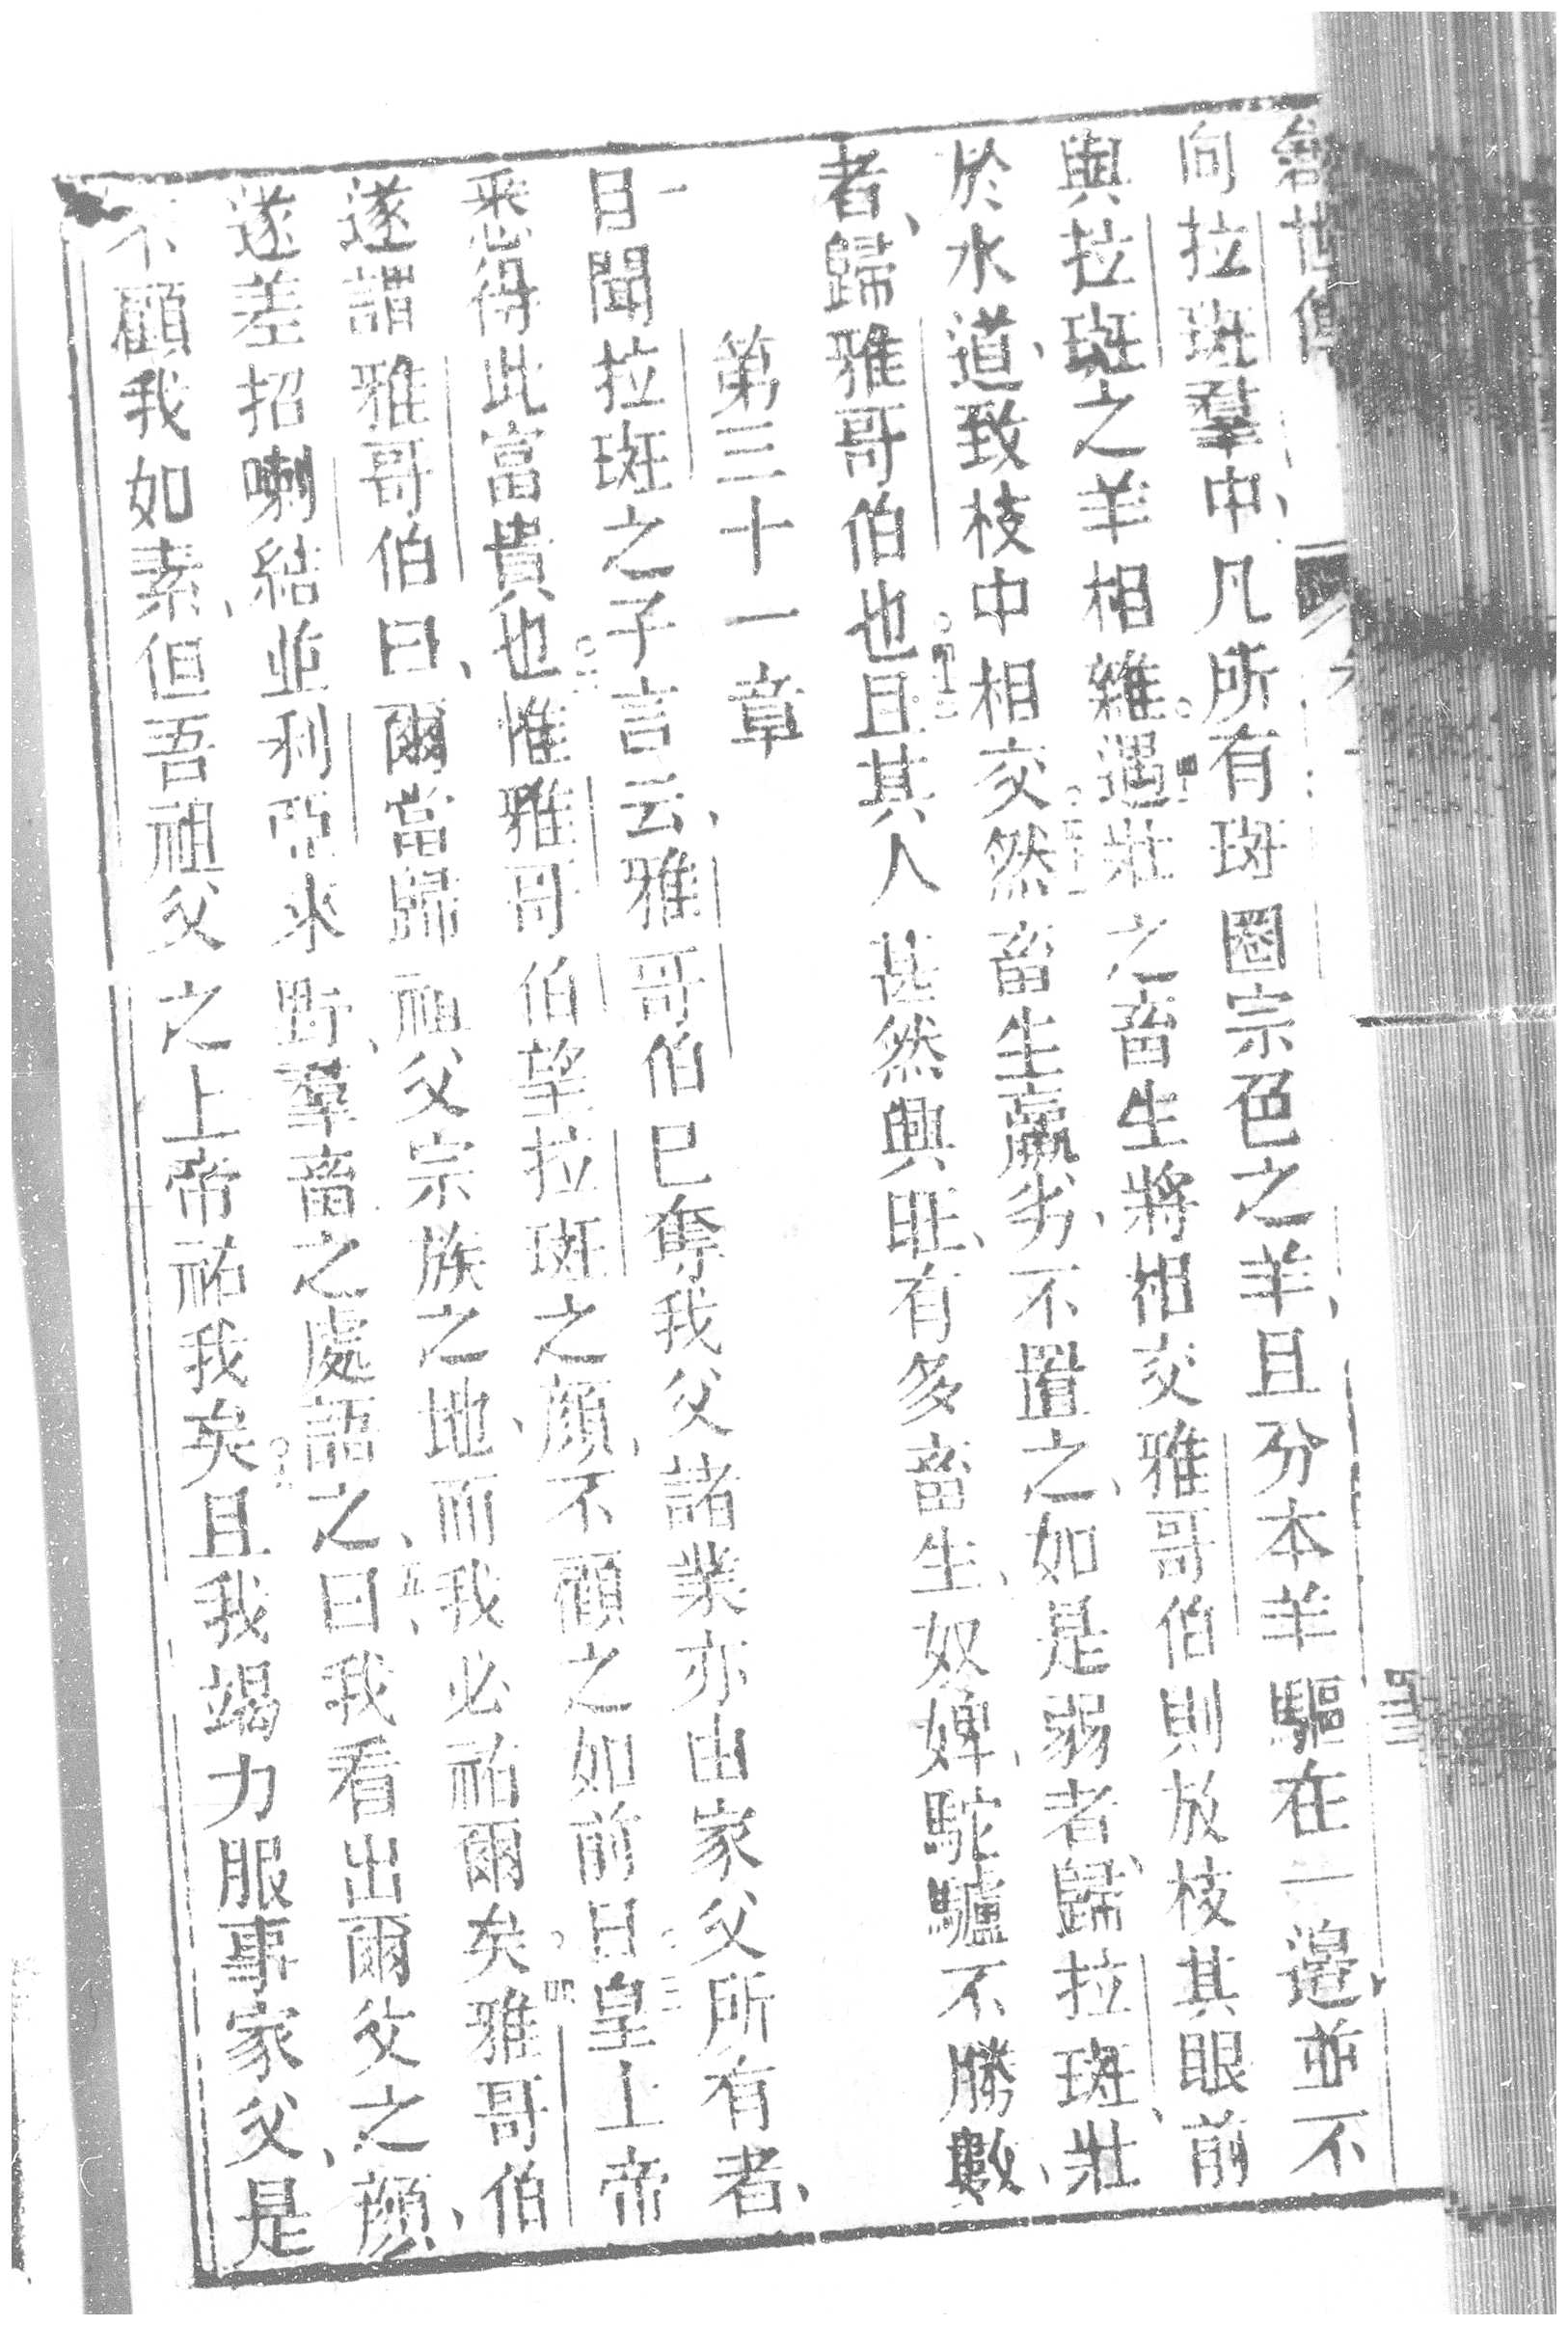 創世傳
向拉斑羣中、凡所有斑圈宗色之羊、且分本羊驅在一邉、並不
與拉斑之羊相雜。遇壯之畜生將相交雅哥伯則放枝其眼前
於水道、致枝中相交。然畜生羸劣、不置之、如是弱者、歸拉斑、壯
者、歸雅哥伯也。且其人甚然興旺、有多畜生、奴婢、駝驢不勝數、
第三十一章
一日聞拉斑之子言云、雅哥伯已奪我父諸業亦由家父所有者、
悉得此富貴也。惟雅哥伯望拉斑之顏、不顧之如前日。皇上帝
遂謂雅哥伯曰、爾當歸祖父宗族之地、而我必祐爾矣。雅哥伯
遂差招喇結、並利亞來野、羣畜之處語之、曰、我看出爾父之顏、
不顧我如素、但吾祖父之上帝祐我矣。且我竭力服事家父、是